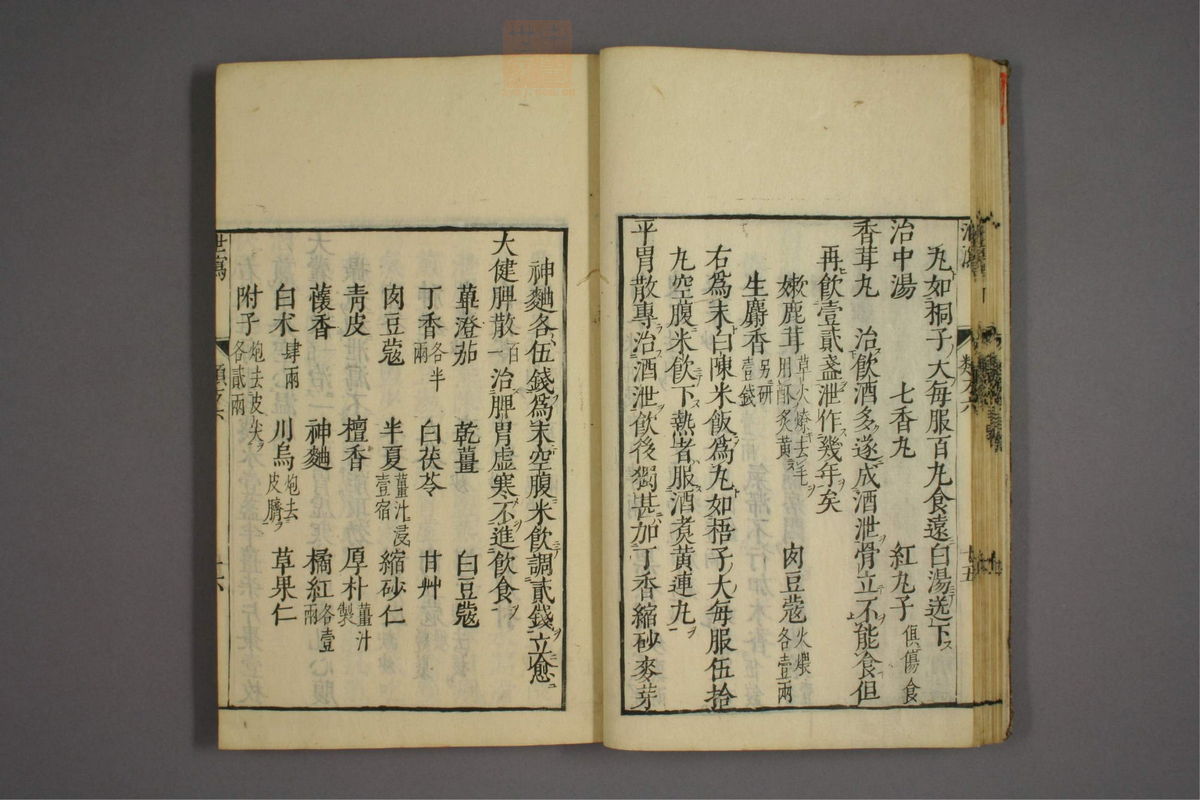 丸如桐子大每服百丸食遠白湯送下
治中湯 七香丸 紅丸子俱傷食
香茸丸 治飲酒多遂成酒泄骨立不能食但
再飲壹貳盞泄作幾年矣
嫩鹿茸草火燎去毛用酥炙黃 肉豆蔻火煨各壹兩
生麝香另研壹錢
右爲末白陳米飯爲丸如梧子大每服伍拾
丸空腹米飲下熱者服酒煑黃連丸
平胃散專治酒泄飲後獨甚加丁香縮砂麥芽
神麯各伍錢爲末空腹米飲調貳錢立愈
大健脾散一百 治脾胃虛寒不進飲食
蓽澄茄 乾薑 白豆蔻
丁香各半兩 白茯苓 甘艸
肉豆蔻 半夏薑汁浸壹宿 縮砂仁
青皮 檀香 厚朴薑汁製
蘹香 神麯 橘紅各壹兩
白朮肆兩 川烏炮去皮臍 草果仁
附子炮去皮尖各貳兩